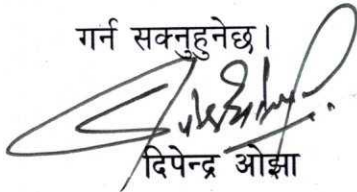 गर्न सक्नुहुनेछ।
दिपेन्द्र ओझा